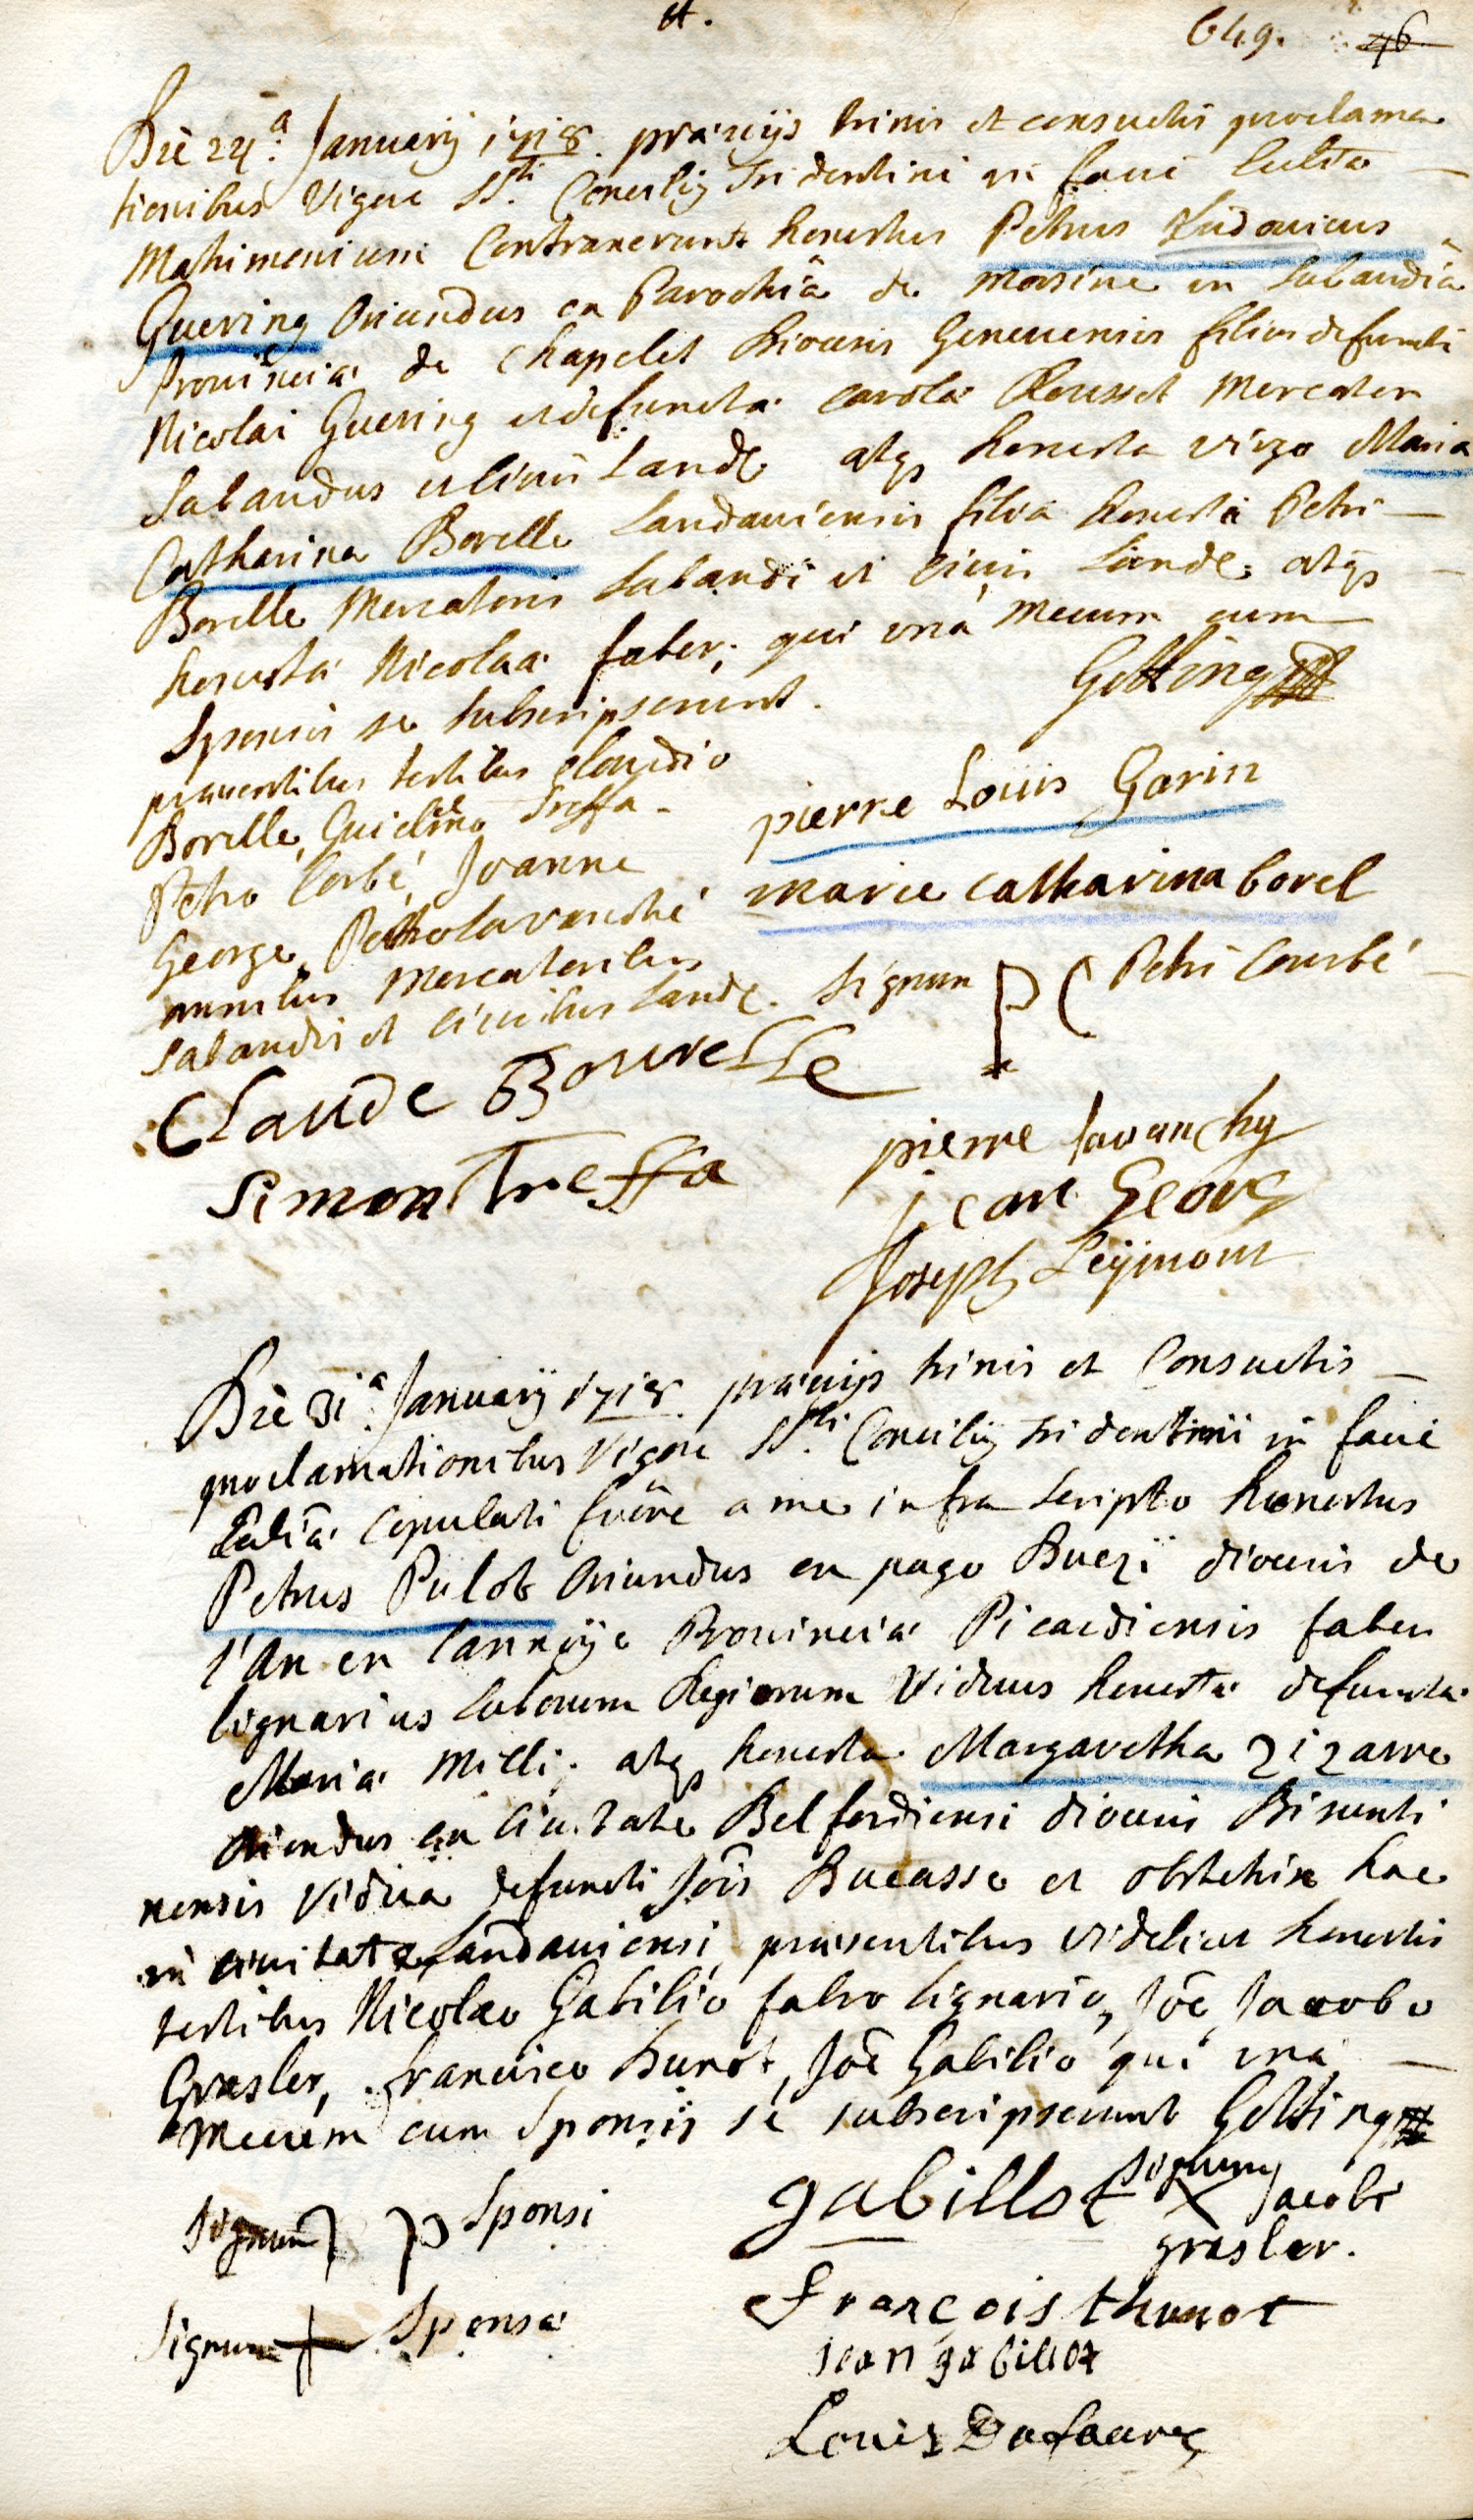 et.
649. 46
Die 24.ª Januarij 1718. praevijs trinis et consuetis proclama
tionibus Vigore SS.ti Concilij Tridentini in facie Eccliae
Matrimonium Contraxerunt honestus Petrus Ludovicus
Guering Oriundus ex Parochiâ de Morsine in Sabaudiâ
Provincia de Chapelet Dioecesis Genevensis filius defuncti
Nicolai Guering et defuncta Carola Rousset Mercator
Sabaudus et Civis Land: atq3 honesta virgo Maria
Catharina Borelle Landaviensis filia honesti Petri
Borelle Mercatoris Sabaudi et Civis Land: atq3
honesta Nicolaa faber; qui unà Mecum cum
Sponsis se subscripserunt. Gotting
praesentibus testibus Claudio
Borelle, Guielmo Treffa
Petro Corbé, Joanne
George, Petro Lavanché
omnibus Mercatoribus
Sabaudis et Civibus Land:
pierre Louis Garin
marie catharina borel
Signum P C Petri Courbé
Claude Bourelle
Simon Treffa
pierre lavanchy
jean George
Joseph Leÿmont
Die 31.ª Januarij 1718. praevijs trinis et Consuetis
proclamationibus Vigore SS.ti Concilij Tridentini in facie
Eccliae Copulati fuêre a me infra Scripto honestus
Petrus Pulot Oriundus ex pago Buezi dioecesis de
l'An en Lannoÿe Provincia Picardiensis faber
lignarius Laborum Regiorum Viduus honesta defuncta
Maria Milli; atq3 honesta Margaretha Zizarre
Oriendus ex Civitate Belfordiensi dioecesis Bisunti
nensis Vidua defuncti Jois Bucasse et obstetrix hac
in civitate Landaviensi, praesentibus videlicet honestis
testibus Nicolao Gabilio fabro lignario, Jôe Jacobo
Grasler, Francisco Dunot, Jôe Gabilio qui unà
Mecum cum Sponsis se subscripserunt Gotting
Signum P Sponsi
Signum + Sponsae
gabillot
Signum X Jacobi
grasler.
François thunot
jean gabillot
Louis Dufaure